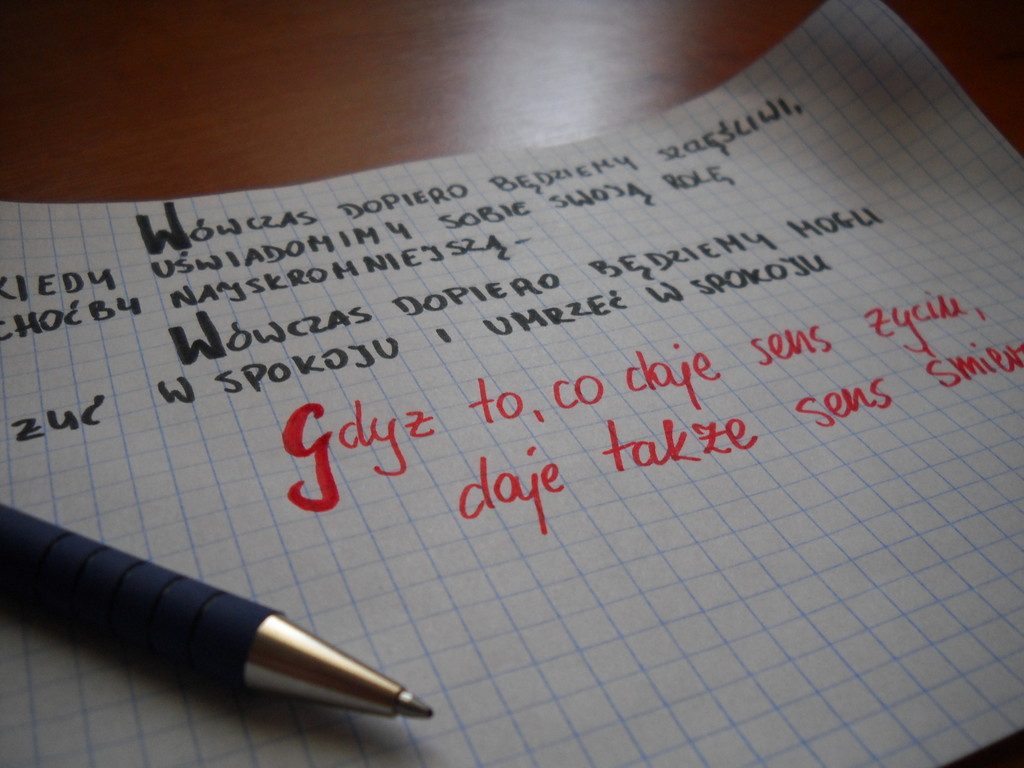 WÓWCZAS DOPIERO BĘDZIEMY SZCZĘŚLIWI,
KIEDY UŚWIADOMIMY SOBIE SWOJĄ ROLĘ
CHOĆBY NAJSKROMNIEJSZĄ -
WÓWCZAS DOPIERO BĘDZIEMY MOGLI
ŻYĆ W SPOKOJU I UMRZEĆ W SPOKOJU
Gdyż to, co daje sens życiu,
daje także sens